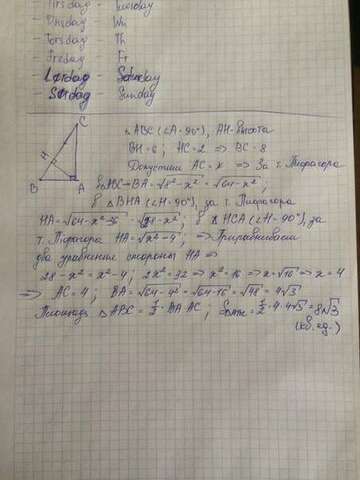 - Tuesday
- Ons day - Wn
- Torsday - Th
- Fredag - Fr
- Lørdag - Saturday
- Søndag - Sunday
C
H
B A
△ABC (∠A=90°), AH-высота
BH=6; HC=2 => BC=8
Допустим AC=x => За т. Пифагора
в △ABC BA=√8²-x² = √64-x²;
в △BHA (∠H=90°), за т. Пифагора
HA=√64-x²-36 = √28-x²; в △HCA (∠H=90°), за
т. Пифагора HA=√x²-4; => Приравниваем
два уравнения стороны HA =>
28-x²=x²-4; 2x²=32 => x²=16 => x=√16 => x=4
=> AC=4; BA=√64-4² = √64-16 = √48 = 4√3
Площадь △ABC = 1/2 · BA · AC; = 1/2 · 4 · 4√3 = 8√3
(кв. ед.)